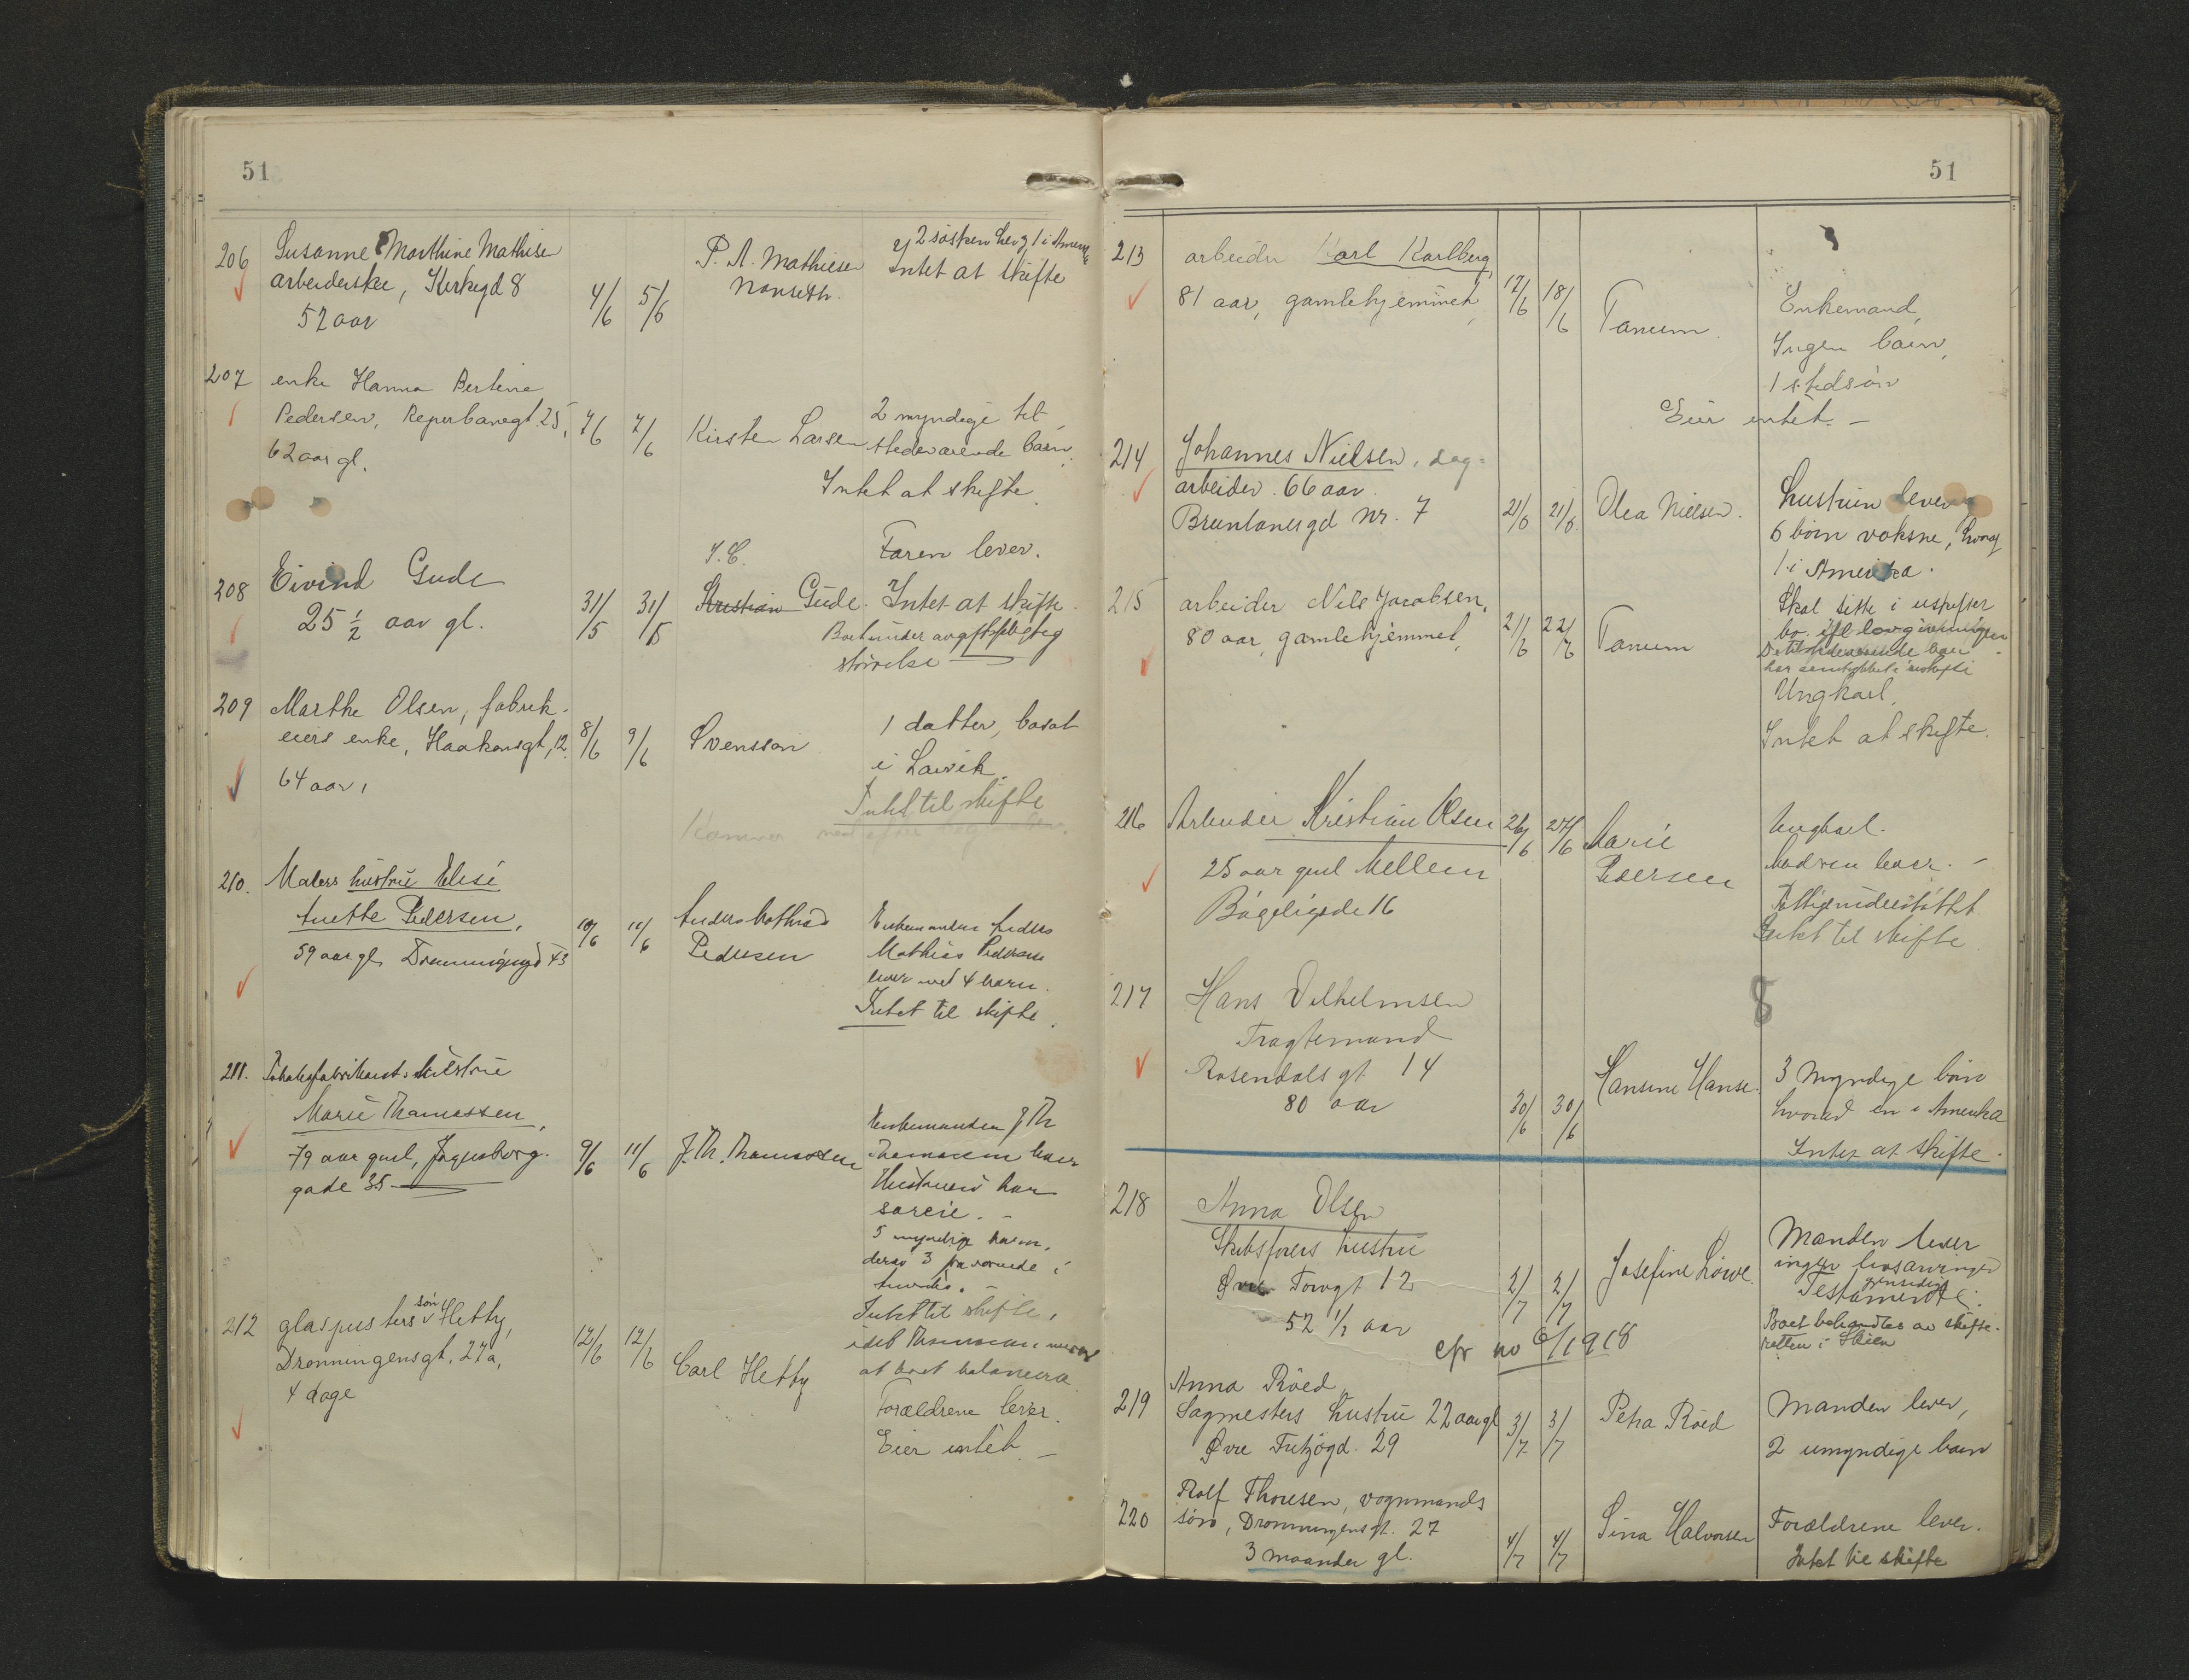 51
206 Susanne Marthine Mathisen
arbeiderske, Kirkegd 8
52 aar
4/6 5/6
P. A. Mathiesen
Nanseth.
2 søsken hvoraf 1 i Amerika
Intet at skifte
207 enke Hanna Bertine
Pedersen, Reperbanegt. 25,
62 aar gl.
7/6 7/6
Kirsten Larsen
2 myndige til
stedeværende børn.
Intet at skifte.
208 Eivind Gude
25 ½ aar gl.
31/5 31/5
Kristian Gude.
Faren lever.
Intet at skifte.
Boet under avgiftspligtig
størrelse
209 Marthe Olsen, fabrik-
eiers enke, Haakonsgt, 12.
64 aar,
8/6 9/6
Svensson
1 datter, bosat
i Larvik.
Intet til skifte
210. Malers hustru Elise
Anette Pedersen,
59 aar gl. Dronningsgd 43
10/6 11/6
Anders Mathias
Pedersen
Enkemanden Anders
Mathias Pedersen
lever med 4 barn.
Intet til skifte.
211. Tobaksfabrikant's hustru
Marie Thomassen,
79 aar gml, Jegersborg-
gade 35
9/6 11/6
J. Th. Thomassen
Enkemanden J Th
Thomassen lever
Hustruen har
særeie. –
5 myndige barn,
derav 3 fraværende i
Amerika. –
Intet til skifte,
idet Thomassen mener
at boet balancerer.
212 glaspusters søn Hetty,
Dronningensgt. 27a,
4 dage
12/6 12/6
Carl Hetty
Forældrene lever.
Eier intet. –
51
213 arbeider Karl Karlberg,
81 aar, gamlehjemmet,
17/6 18/6
Tanum.
Enkemand,
Ingen børn,
1 stedsøn
Eier intet. –
214 Johannes Nielsen, dag-
arbeider. 66 aar.
Brunlanesgd Nr. 7
21/6 21/6
Olea Nielsen.
hustruen lever
6 børn voksne, hvoraf
1 i Amerika.
Skal sitte i uskiftet
bo ifl lovgivningen
215 arbeider Nils Jacobsen,
80 aar, gamlehjemmet,
21/6 22/6
Tanum
Ungkarl,
Intet at skifte.
216 Arbeider Kristian Olsen
25 aar gml Mellem
Bøgeligade 16
26/6 27/6
Marie
Pedersen
Ungkarl.
Modren lever. –
Fattigunderstøttet
Intet til skifte.
217 Hans Vilhelmsen
Fragtemand
Rosendalsgt 14
80 aar
30/6 30/6
Hansine Hanse.
3 Myndige børn
hvorav en i Amerika
Intet at skifte.
218 Anna Olsen
Skibsførers hustru
Øvre Torvgt 12
52 ½ aar
2/7 2/7
Josefine Løwe.
Manden lever
ingen livsarvinger
gensidig
Testamente.
Boet behandles av skifte-
retten i Skien
cfr no 6/1918
219 Anna Røed
Sagmesters hustru 22 aar gl
Øvre Fritzøgd. 29
3/7 3/7
Petra Røed
Manden lever,
2 umyndige børn
220 Rolf Thoresen, vognmands
søn, Dronningensgt. 27
3 maander gl.
4/7 4/7
Sina Halvorsen
Forældrene lever.
Intet til skifte